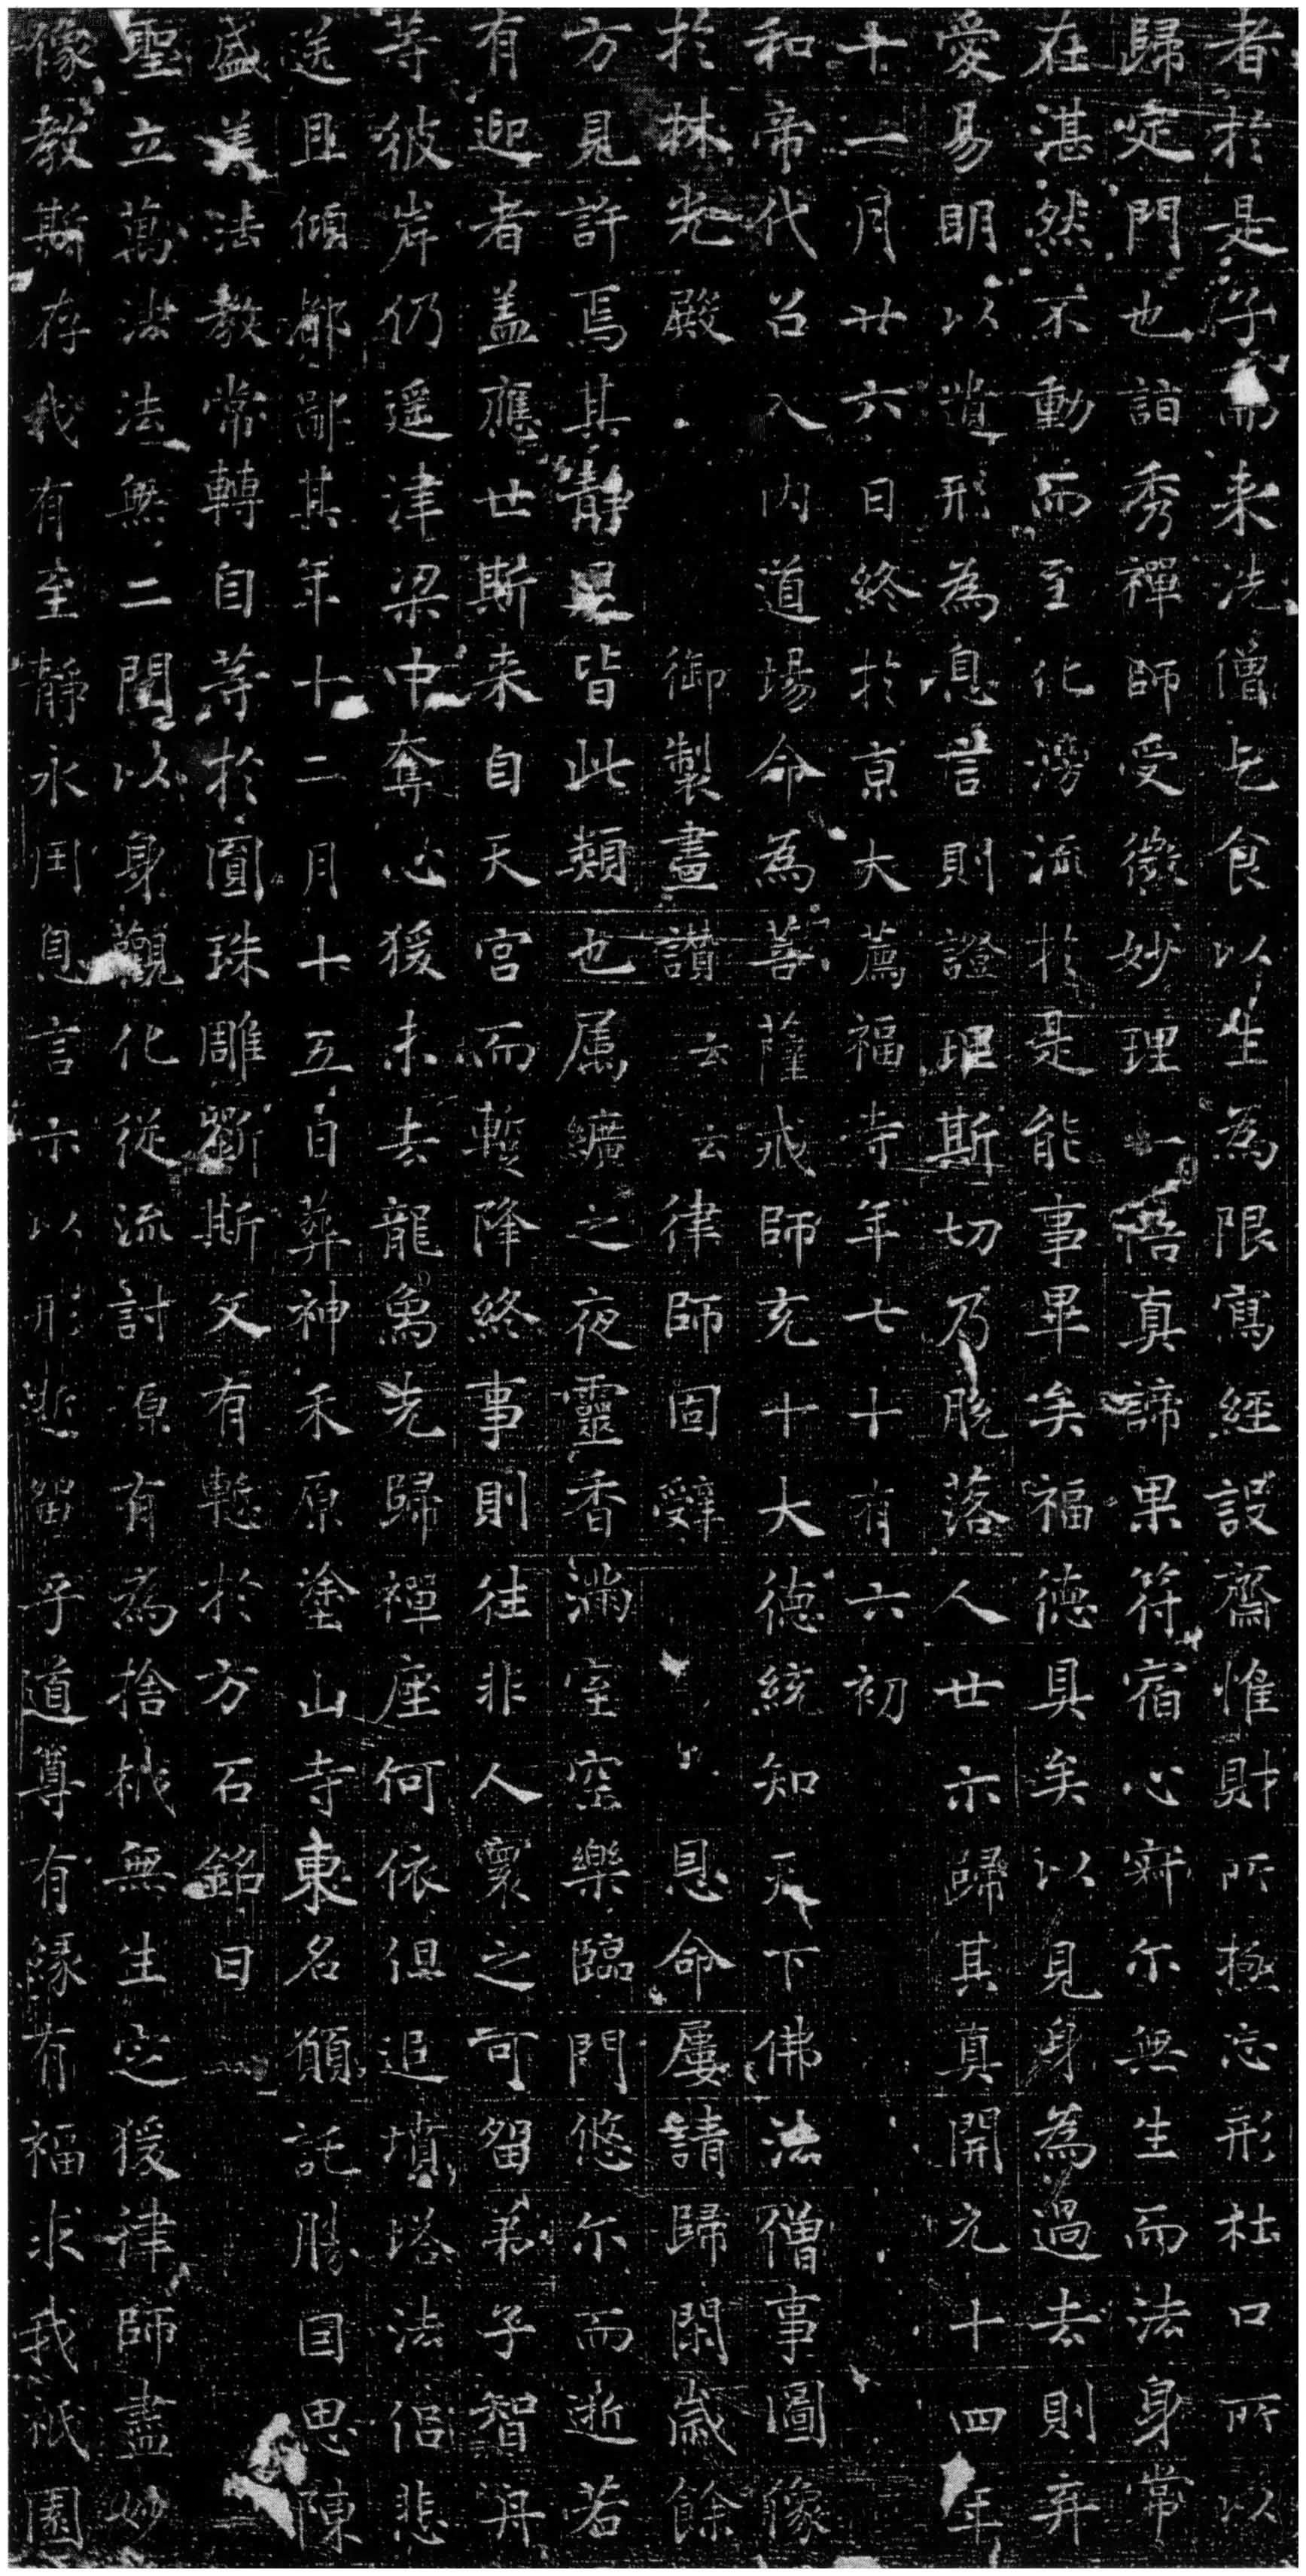 者於是乎而来洗僧乞食以生為限寫經設齋惟財所極忘形杜口所以
歸定門也詣秀禪師受微妙理一悟真諦果符宿心寂尔無生而法身常
在湛然不動而至化滂流於是能事畢矣福德具矣以見身為過去則弃
愛易明以遺形為息言則證理斯切乃脱落人世示歸其真開元十四年
十一月廿六日終於京大薦福寺年七十有六初
和帝代召入内道場命為菩薩戒師充十大德統知天下佛法僧事圖像
於林光殿御製畫讚云云律師固辭恩命屢請歸閑歲餘
方見許焉其静退皆此類也属纊之夜靈香滿室空樂臨門悠尔而逝若
有迎者盖應世斯来自天宫而蹔降終事則往非人寰之可留弟子智舟
等彼岸仍遥津梁中奪心猨未去龍象先歸禪座何依但追墳塔法侣悲
送且傾都鄙其年十二月十五日葬神禾原塗山寺東名願託勝因思陳
盛美法教常轉自等於圓珠雕斵斯文有慙於方石銘曰
聖立萬法法無二門以身觀化從流討源有為捨栰無生定猨律師盡妙
像教斯存我有至静永用息言示以形逝留乎道尊有緣有福求我祇園